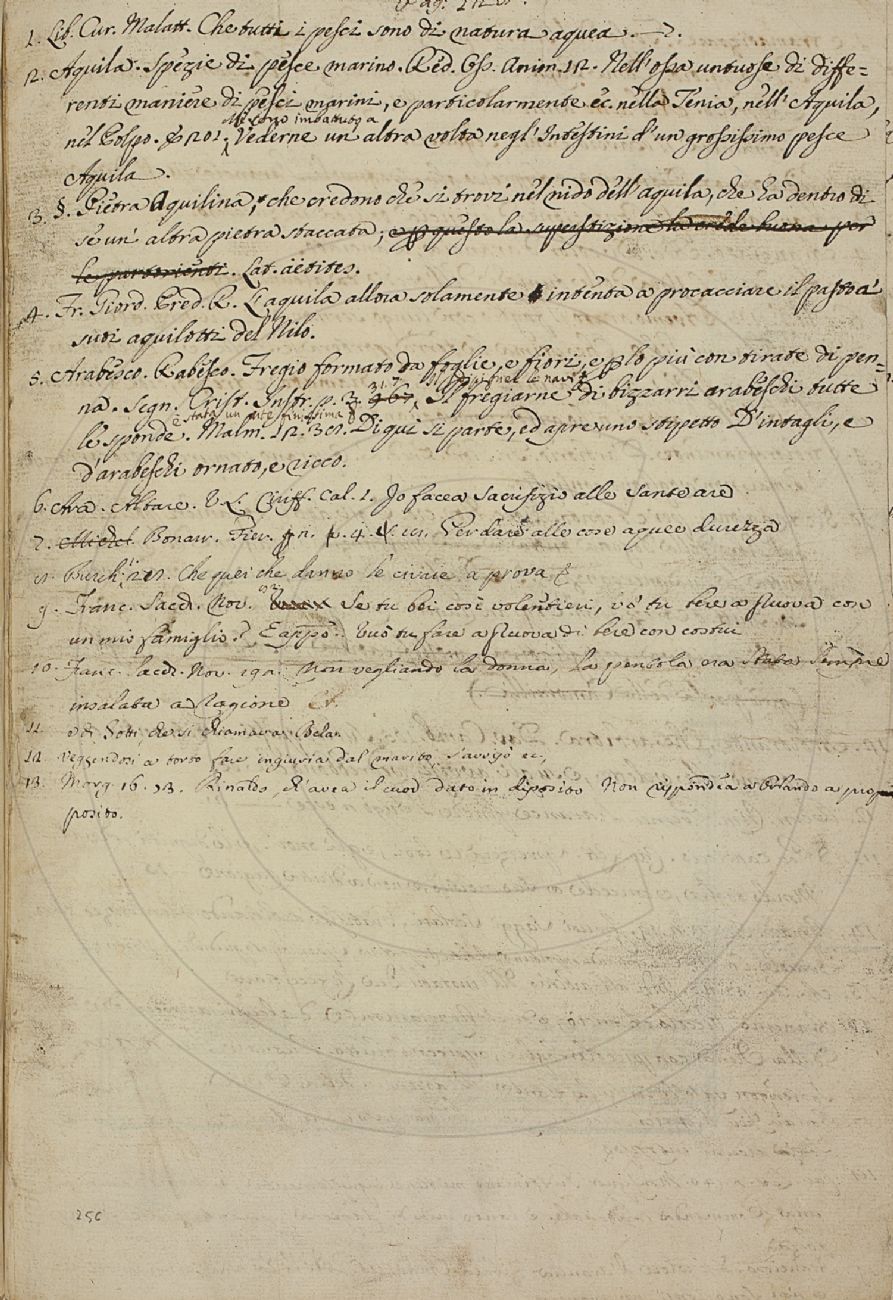 1. Lib. Cur. Malatt. Che tutti i pesci sono di natura aquea.
2. Aquila. Spezie di pesce marino. Red. Oss. Anim. 12. Nell'ossa untuose di diffe=
renti maniere di pesci marini, e particolarmente ec. nella Tenia, nell'Aquila,
Mi sono imbattuto a
nel Colpo. E 201. Vederne un'altra volta negl'Intestini d'un grossissimo pesce
Aquila.
3. §. Pietra Aquilina, che credono che si trovi nel nido dell'aquila, che ha dentro di
se un'altra pietra staccata, e p questo la superstizione la crede buona per
le partorienti. Lat. äetites.
4. Fr. Giord. Pred. R. L'aquila allora solamente intenta a procacciare il pasto a'
suoi aquilotti del Nilo.
5. Arabesco. Rabesco. Fregio formato da foglie, e fiori, e p lo più con tirate di pen=
na. Segn. Crist. Instr. p. 3. Il fregiarne di bizzarri arabeschi tutte
è stata un'arte finissima
le sponde. Malm. Di qui si parte, ed apre uno stipetto D'intagli, e
d'arabeschi ornato, e ricco.
6. Ara. Altare. V. L. Ciriff. Cal. 1. Io facea sacrifizio alle sante are
7. Bonarr. Fier. Per dare alle cose aquee durezza
8. Burch. Che quei che danno le civaie a prova
9. Franc. Sacch. Nov. Se tu bei così volentieri, vo' tu bere a pruova con
un mio famiglio? E appo: Vuo' tu fare a pruova di bere con costui
10. Franc. Sacch. Nov. Non vegliando la donna, la pentola era stata sempre
insalata a ragione
11. e di sotti che si chiamava Bela.
12. Veggendosi a torto fare ingiuria dal marito s'avvisò ec.
13. Morg. 16. Rinaldo, ch'avea il cuor dato in diposito Non rispondea a Orlando a pro
posito.
256